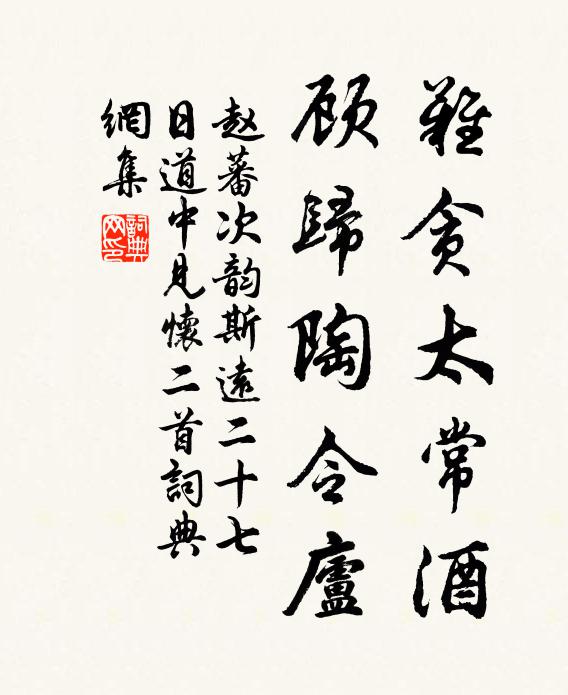 難貪太常酒
顾歸陶令廬
赵蕃次韵斯遠二十七
日道中見懷二首詞典
網集
詞典网印